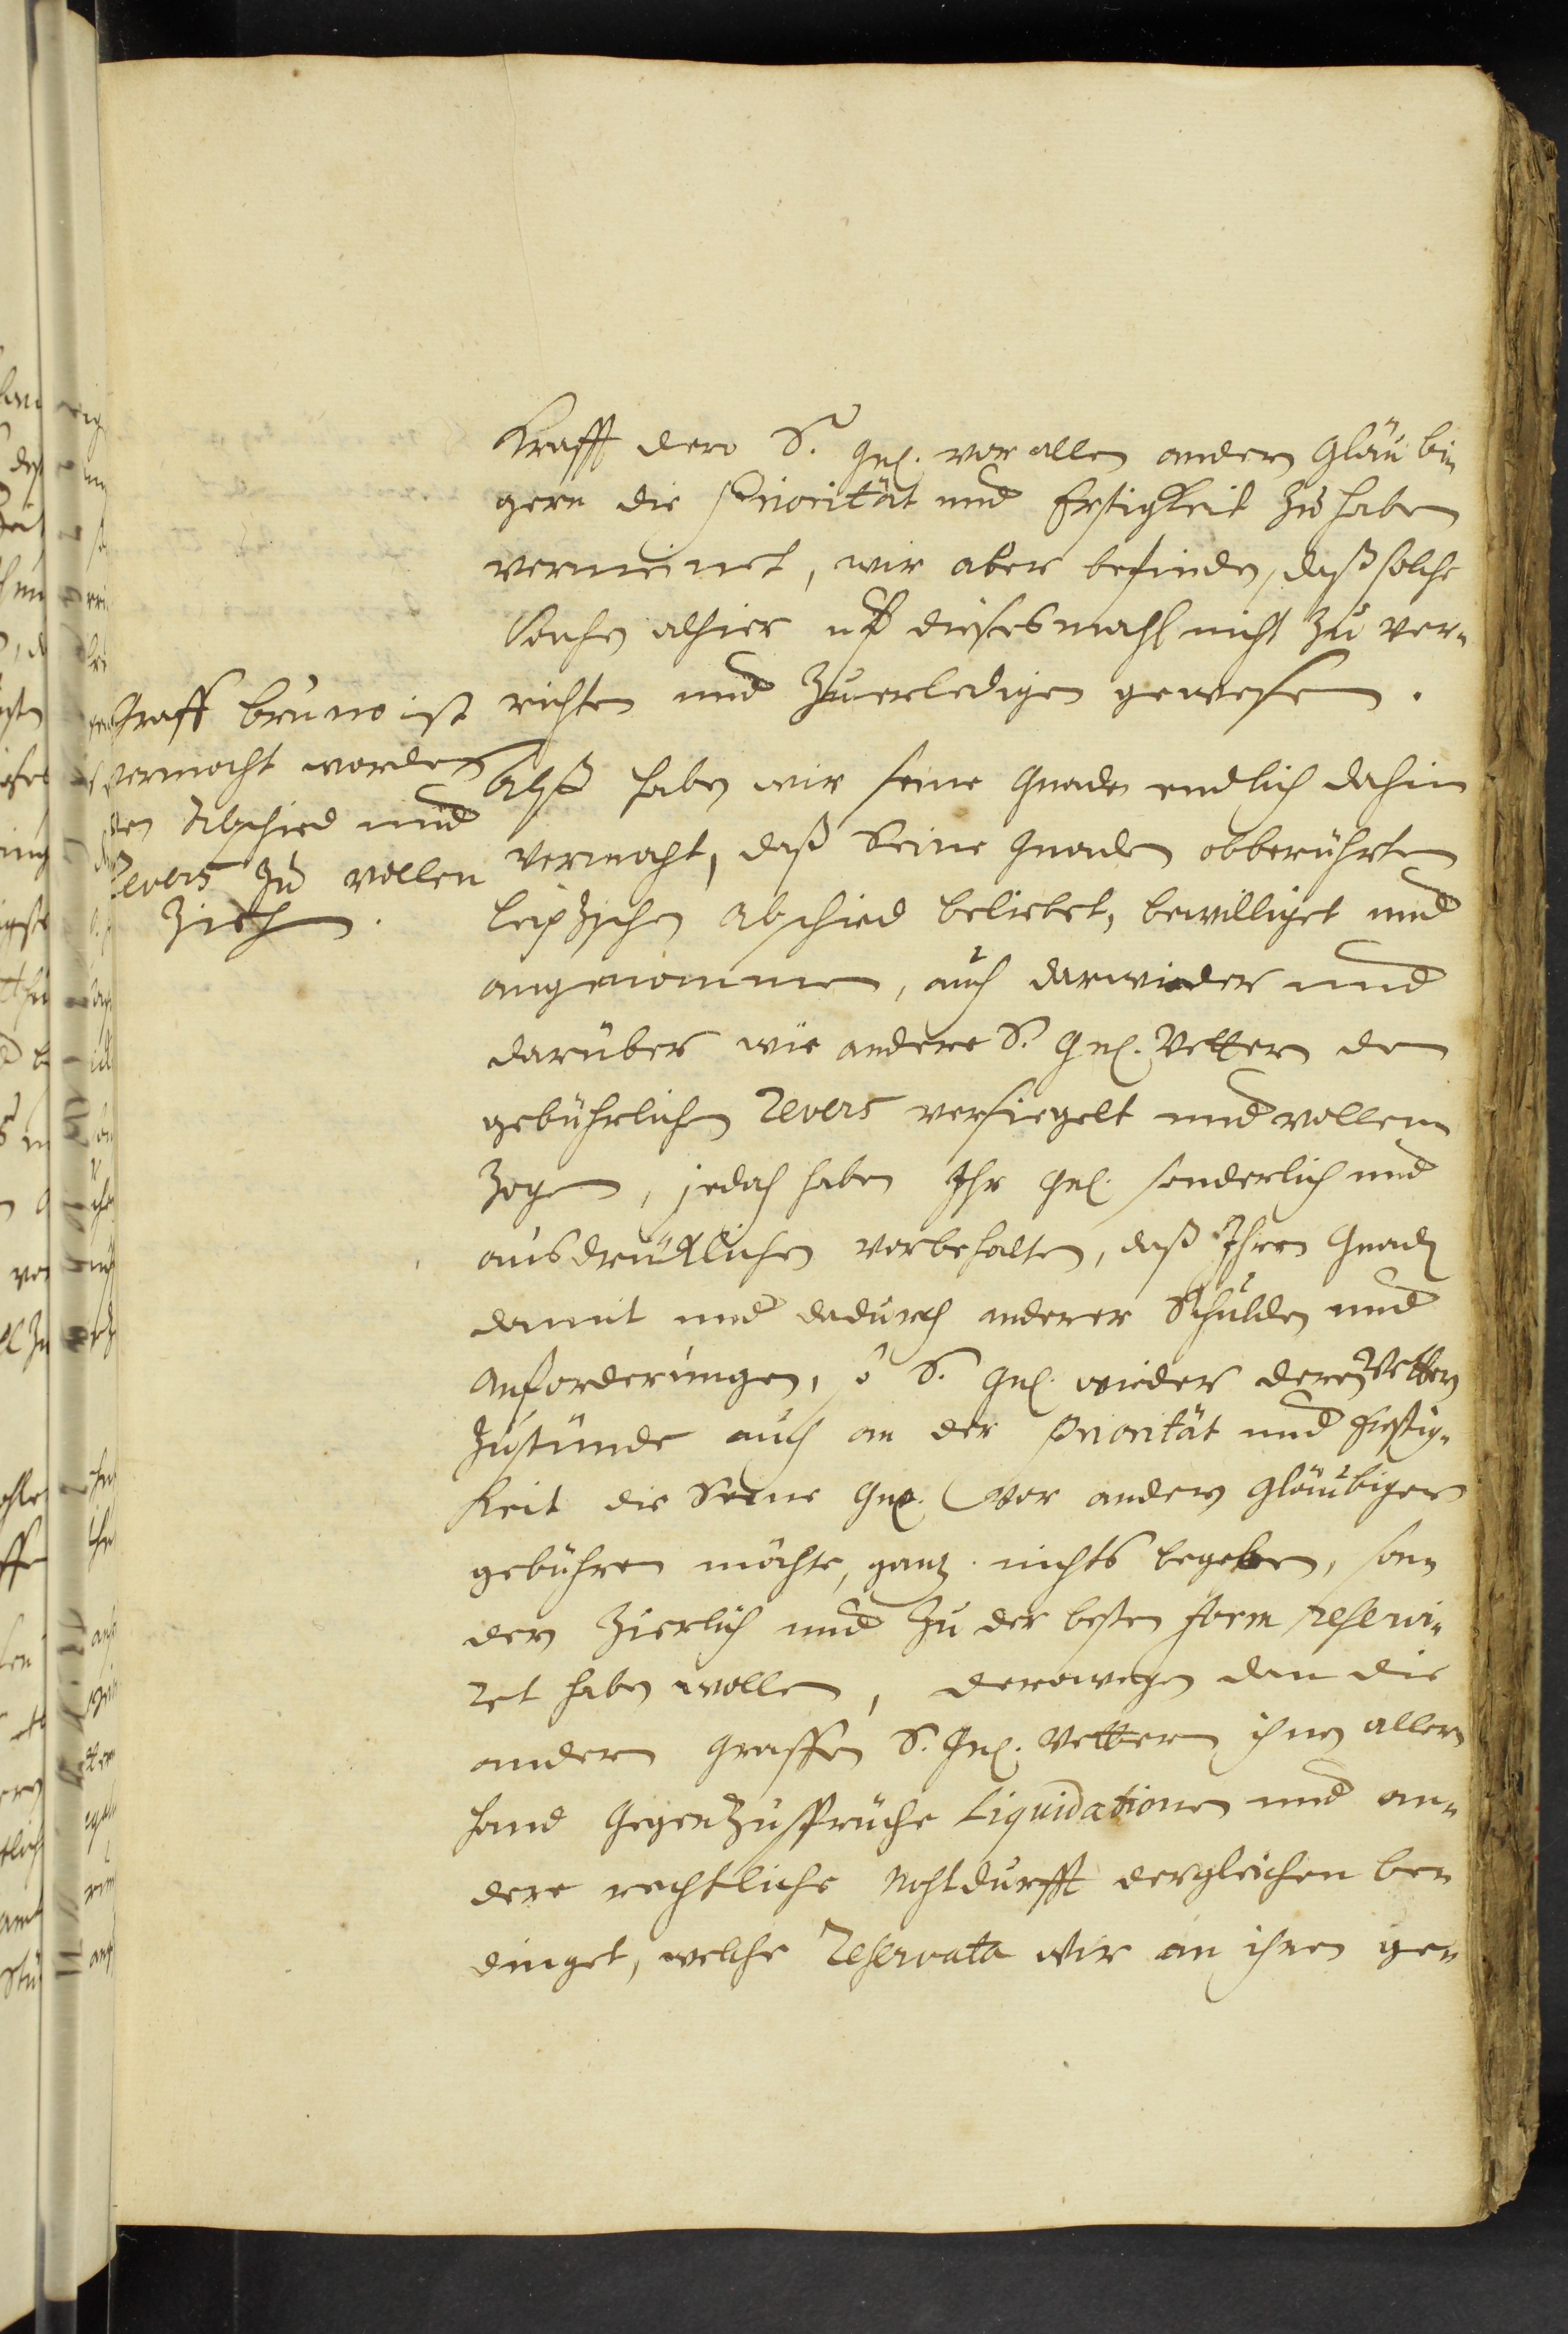 Krafft dero S. Gn. vor allen andern Gläubi-
gern die Priorität und Erstigkeit zu haben
vermeinet, wir aber befinden, daß solche
Sachen alhier uf diesesmahl nicht zu ver-
richten und zuerledigen gewesen.
Graff Bruno ist
vermocht worden
den Abschied und
Revers zu vollen
ziehen.
Alß haben wir seine Gnade endlich dahin
vermocht, daß Seine Gnaden obberührten
Leipzschen Abschied beliebet, bewilliget und
angenommen, auch darwieder und
darüber wie andere S. Gn. Vettern den
gebührlichen Revers versiegelt und vollen-
zogen, jedoch haben Ihr Gn. sonderlich und
ausdrücklichen vorbehalten, daß Ihren Gnaden
damit und dadurch anderer Schulden und
Anforderungen, so S. Gn. wieder deren Vettern
zustünde auch an der Priorität und Erstig-
keit die Seine Gn. vor andern Gläubigern
gebühren möchte, gantz nichts begeben, son-
dern zierlich und zu der besten Form reservi-
ret haben wollen, derowegen dan die
andern Graffen S. Gn. Vettern ihnen aller-
hand Gegenzusprüche Liquidationen und an-
dere rechtliche Nohtdurfft dergleichen be-
dinget, welche Reservata wir an ihren ge-